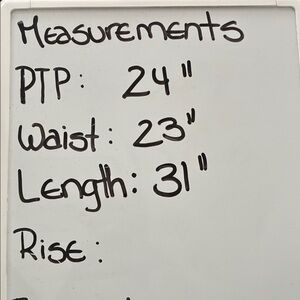 Measurements
PTP: 24"
Waist: 23"
Length: 31"
Rise: